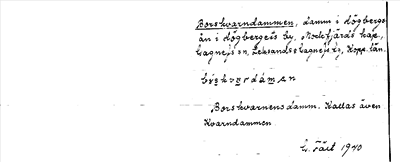 Borskvarndammen, damm i Högbergs-
ån i Högbergets by, Mockfjärds kap.,
Gagnefs sn, Leksands o Gagnefs tg, Kopp. län.
Borskvarnens damm. Kallas även
Kvarndammen
1940